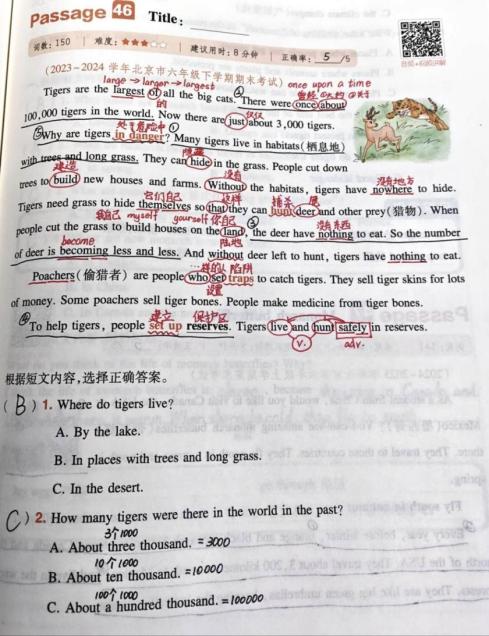 Passage 46 Title:
词数：150 难度：★★★☆☆ 建议用时：8 分钟 正确率：5 /5
(2023-2024 学年北京市六年级下学期期末考试) once upon a time
large → larger → largest
Tigers are the largest of all the big cats. ② There were once about
100,000 tigers in the world. Now there are just about 3,000 tigers.
处于危险中 ①
③ Why are tigers in danger? Many tigers live in habitats (栖息地)
with trees and long grass. They can hide in the grass. People cut down
建造 没有 没有地方
trees to build new houses and farms. Without the habitats, tigers have nowhere to hide.
它们自己 这样 捕杀 鹿
Tigers need grass to hide themselves so that they can hunt deer and other prey (猎物). When
我自己 myself yourself 你自己 没有东西
people cut the grass to build houses on the land, the deer have nothing to eat. So the number
become 陆地
of deer is becoming less and less. And without deer left to hunt, tigers have nothing to eat.
陷阱
Poachers (偷猎者) are people who set traps to catch tigers. They sell tiger skins for lots
设置
of money. Some poachers sell tiger bones. People make medicine from tiger bones.
建立 保护区
④ To help tigers, people set up reserves. Tigers live and hunt safely in reserves.
v. adv.
根据短文内容，选择正确答案。
( B ) 1. Where do tigers live?
A. By the lake.
B. In places with trees and long grass.
C. In the desert.
( C ) 2. How many tigers were there in the world in the past?
3个1000
A. About three thousand. =3000
10个1000
B. About ten thousand. =10000
100个1000
C. About a hundred thousand. =100000